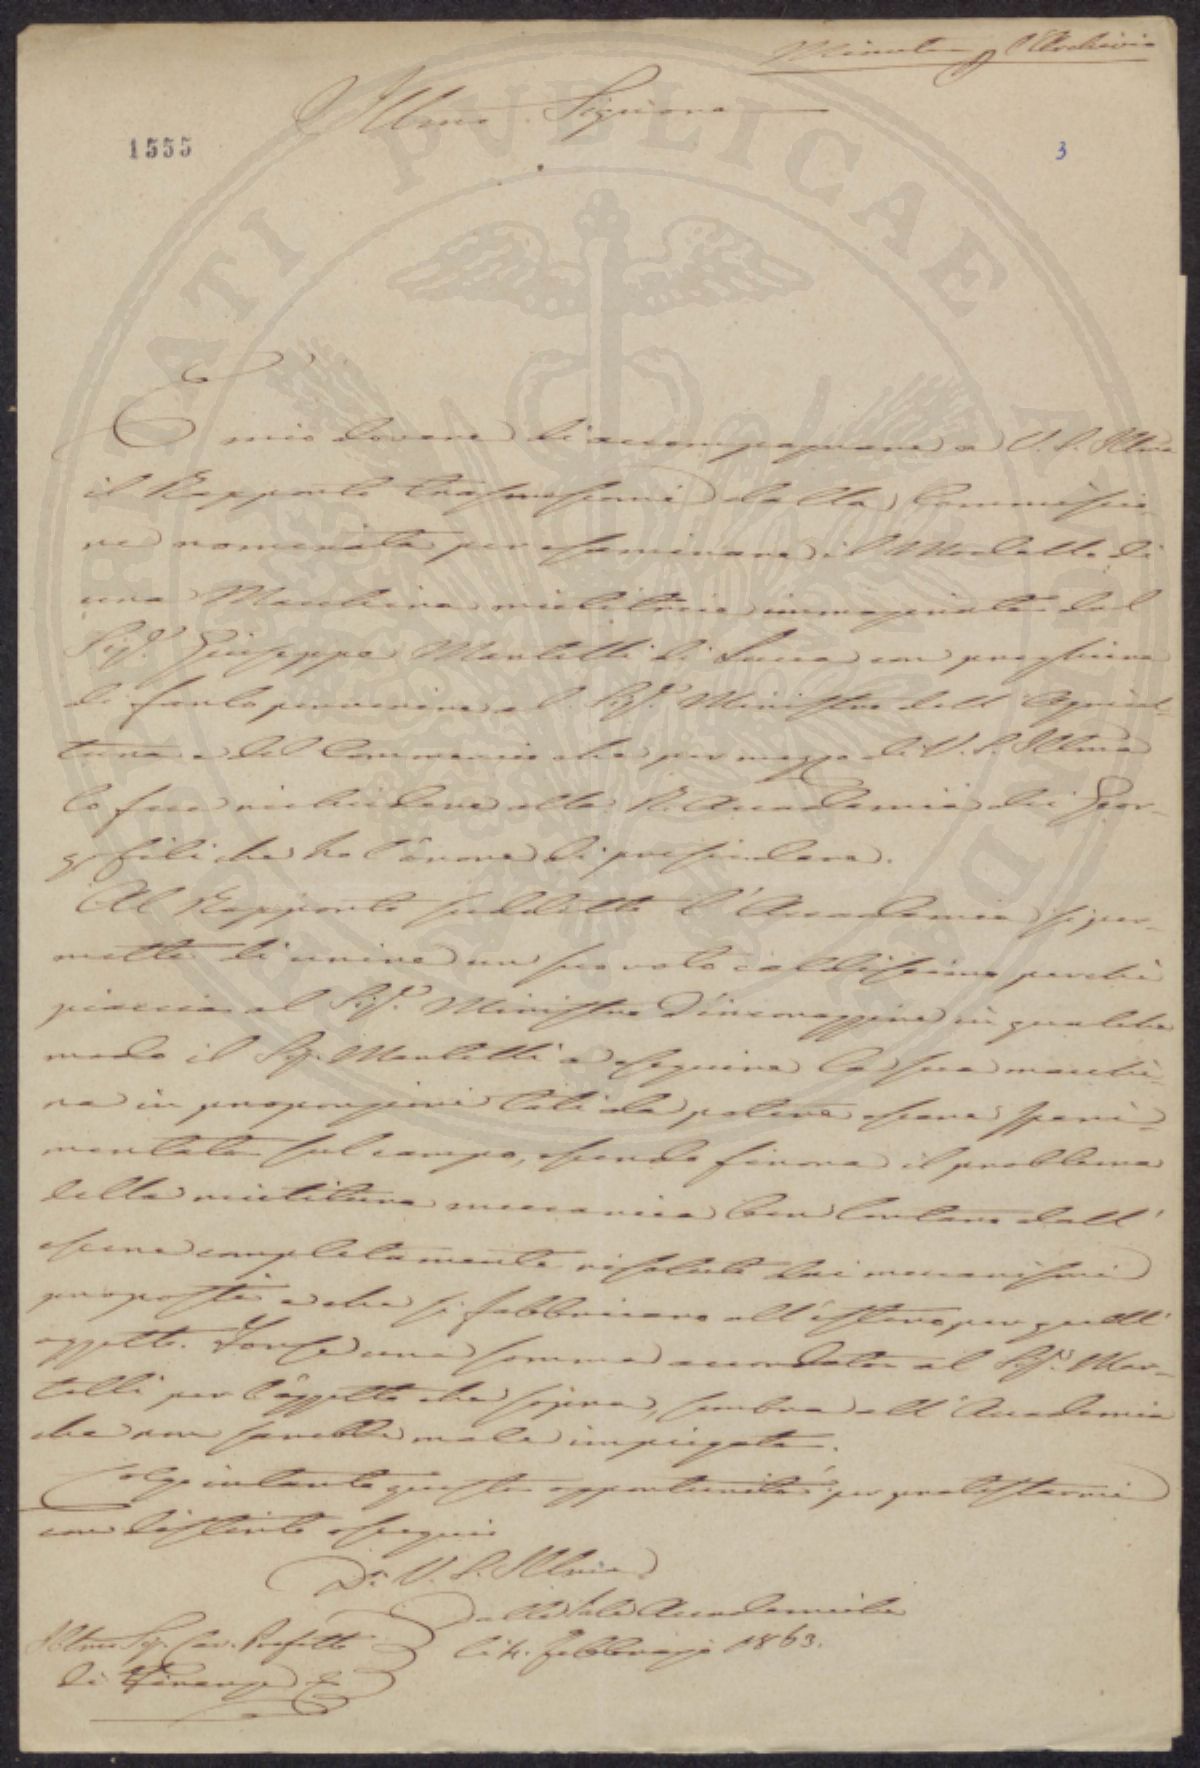 Minuta p l'Archivio
Illmo. Signore
1555
3
È mio dovere di accompagnare a V. S. Illma
il Rapporto trasmessomi dalla Commissio-
ne nominata per esaminare il Modello di
una Macchina mietitrice immaginata dal
Sigr. Giuseppe Martelli di Lucca con preghiera
di farlo pervenire al Sigr. Ministro dell'Agricol-
tura e del Commercio che per mezzo di V. S. Illma
lo fece richiedere alla R. Accademia dei Geor-
gofili che ho l'onore di presiedere.
Al Rapporto suddetto l'Accademia si per-
mette di unire un suo voto caldissimo perchè
piaccia al Sigr. Ministro d'incoraggire in qualche
modo il Sigr. Martelli a eseguire la sua macchi-
na in proporzioni tali da potere essere speri-
mentata sul campo, essendo finora il problema
della mietitura meccanica ben lontano dall'
essere completamente risoluto dai meccanismi
proposti e che si fabbricano all'estero per quell'
oggetto. Forse una somma accordata al Sigr. Mar-
telli per l'oggetto che sopra, sembra all'Accademia
che non sarebbe male impiegata.
Colgo intanto questa opportunità per protestarmi
con distinto ossequio
Di V. S. Illma
Dalle Sale Accademiche
li 4. Febbrajo 1863.
Illmo Sig. Cav. Prefetto
di Firenze